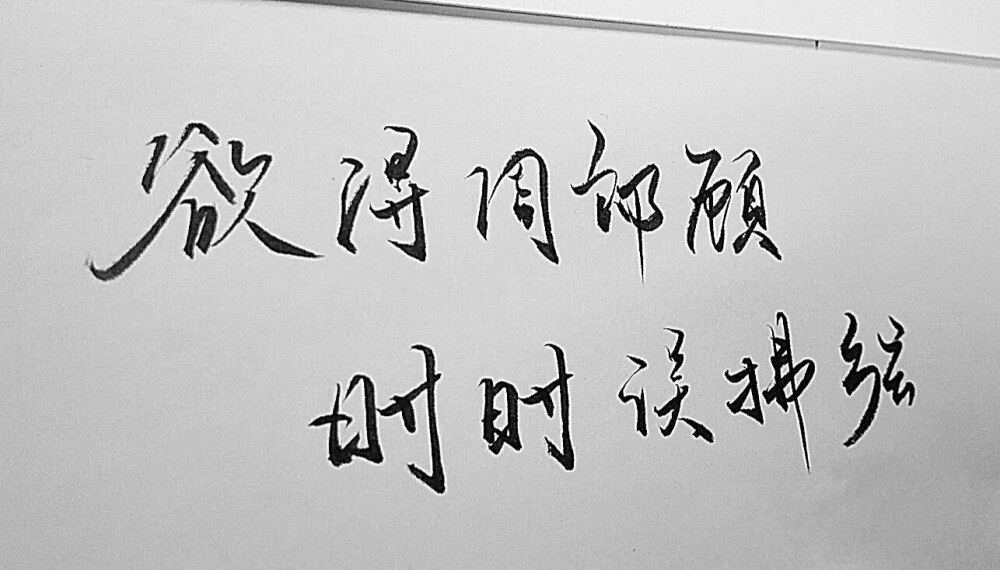 欲得周郎顾
时时误拂弦